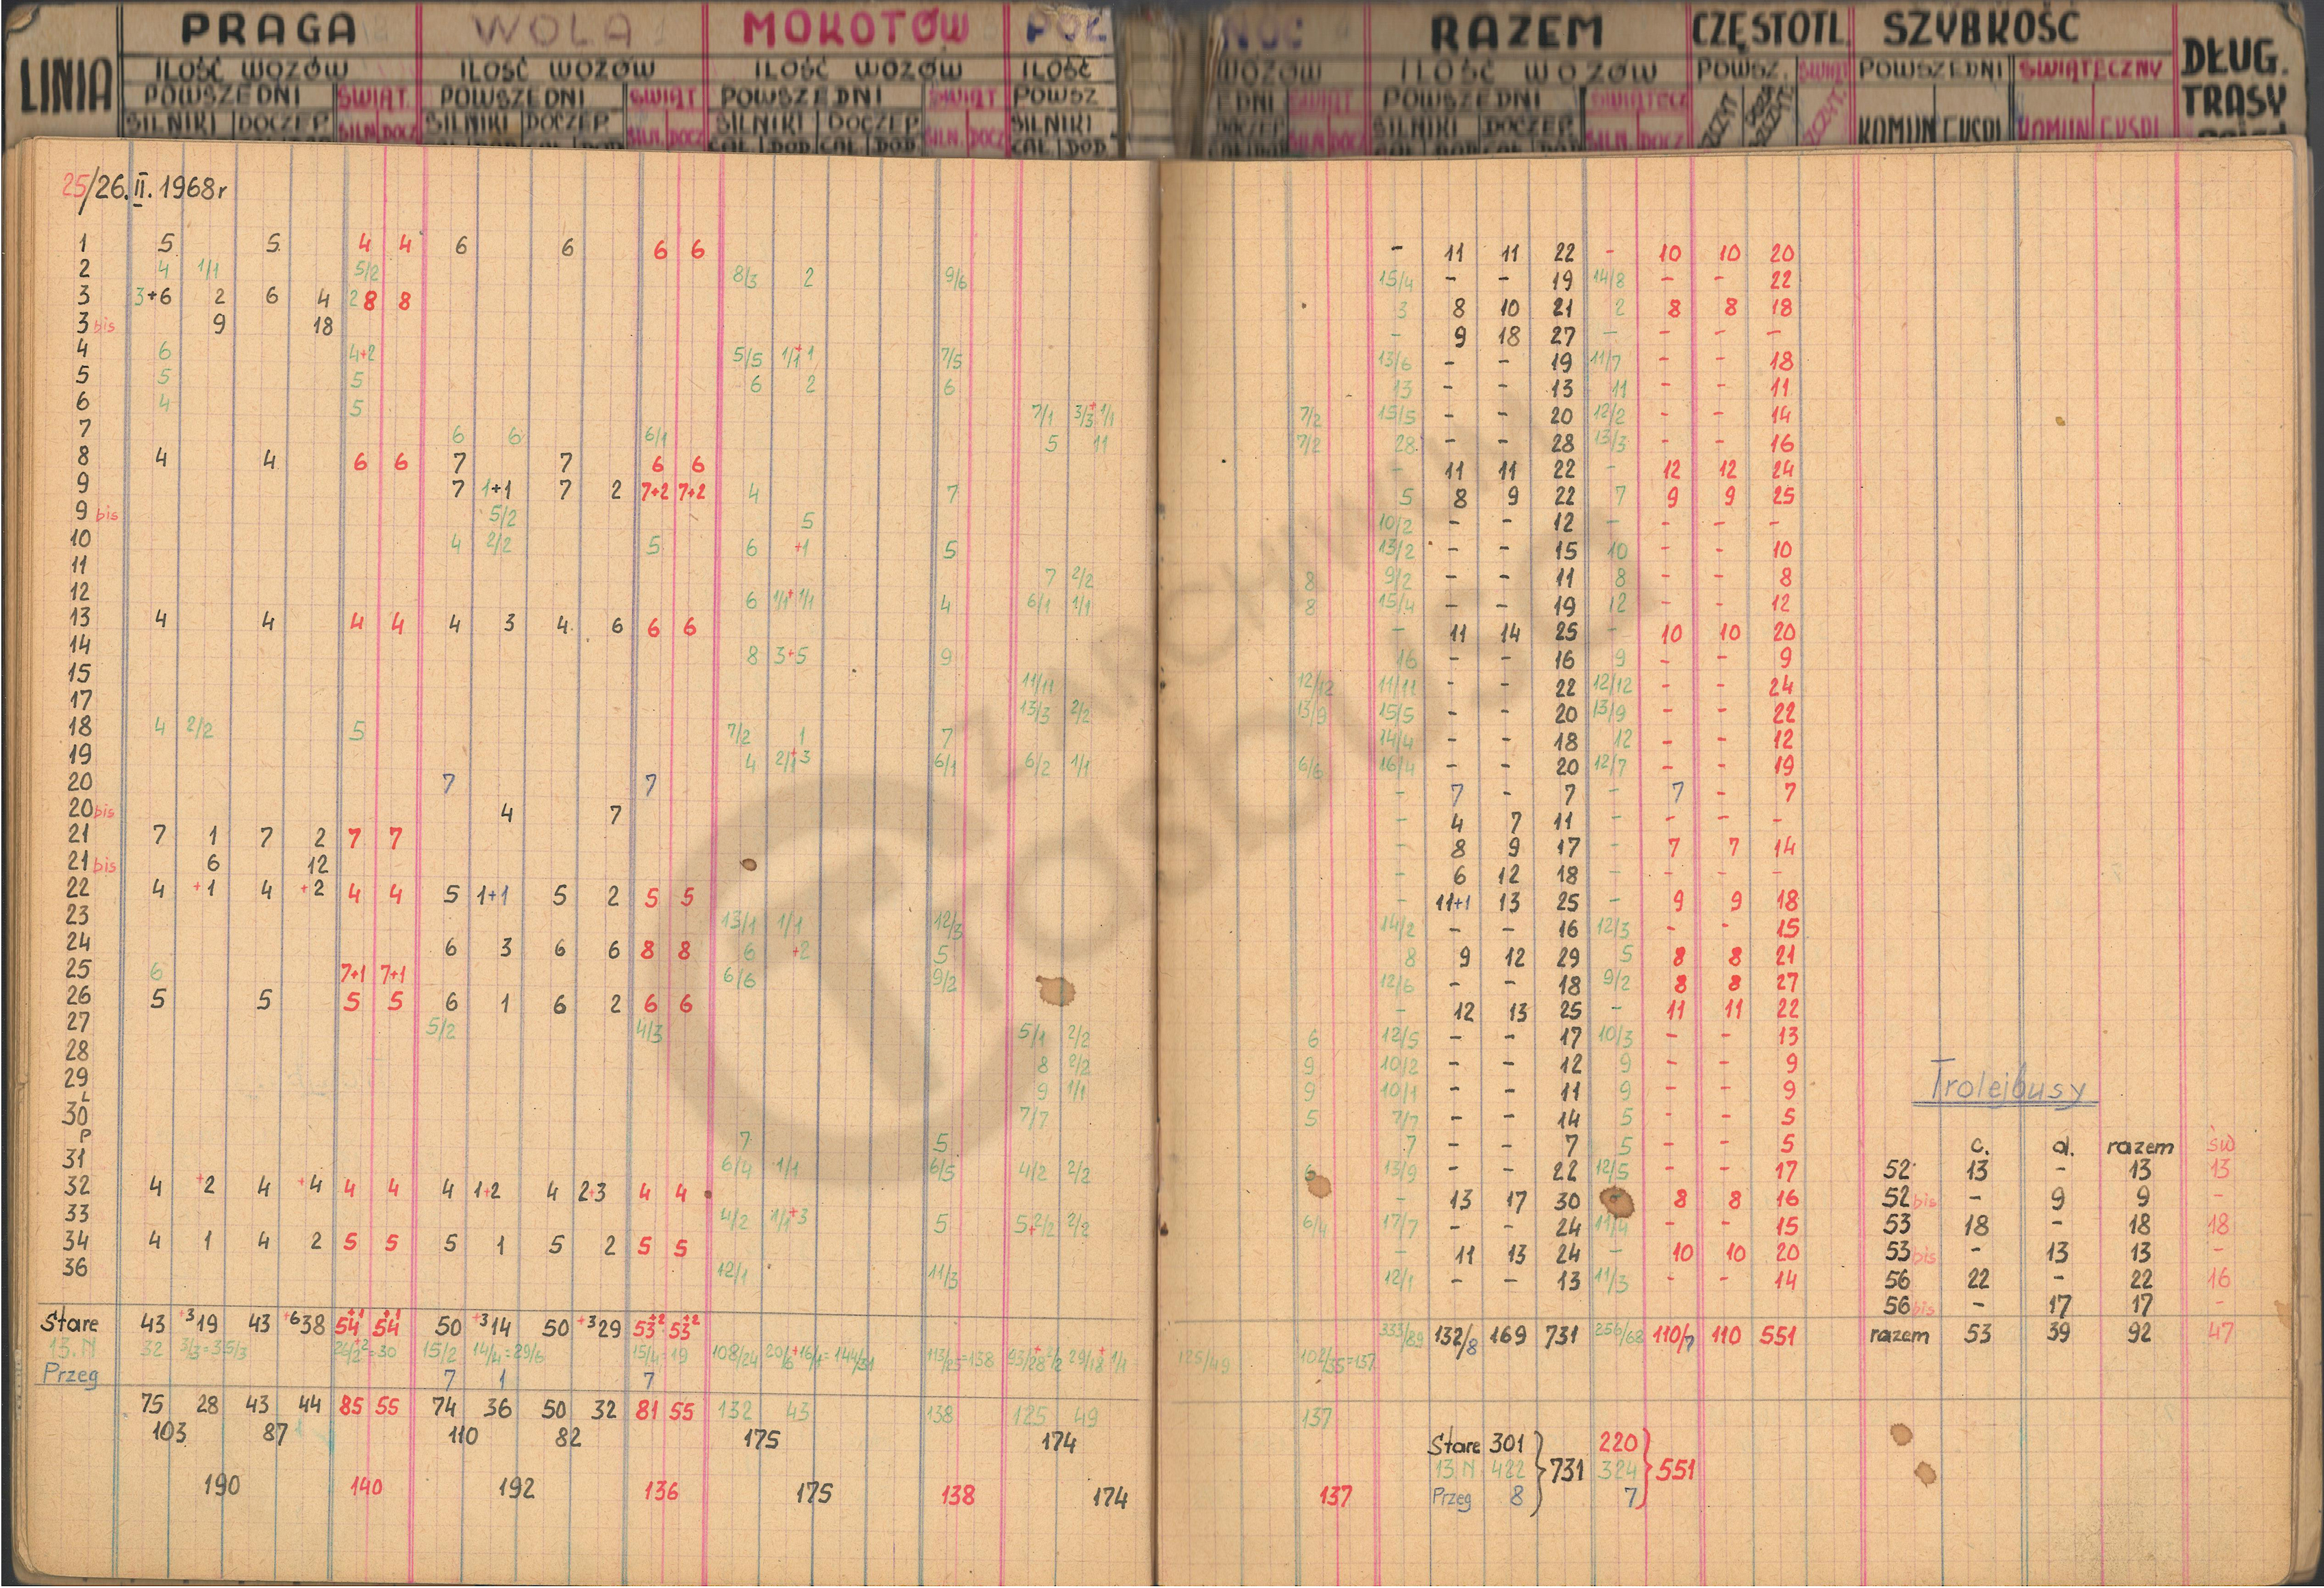 LINIA PRAGA WOLA MOKOTÓW PÓŁ NOC RAZEM CZĘSTOTL. SZYBKOŚĆ DŁUG. TRASY
ILOŚĆ WOZÓW ILOŚĆ WOZÓW ILOŚĆ WOZÓW ILOŚĆ WOZÓW ILOŚĆ WOZÓW POWSZ. ŚWIĄT POWSZEDNI ŚWIĄTECZNY
POWSZEDNI ŚWIĄT. POWSZEDNI ŚWIĄT POWSZEDNI ŚWIĄT POWSZ EDNI ŚWIĄT POWSZEDNI ŚWIĄTECZ
SILNIKI DOCZEP SILN. DOCZ SILNIKI DOCZEP SILN. DOCZ SILNIKI DOCZEP SILN. DOCZ SILNIKI DOCZEP SILN. DOCZ SILNIKI DOCZEP SILN. DOCZ KOMUN EKSPL KOMUN EKSPL
25/26.II.1968r
1 5 5 4 4 6 6 6 6 - 11 11 22 - 10 10 20
2 4 1/1 5/2 8/3 2 9/6 15/4 - - 19 14/8 - - 22
3 3+6 2 6 4 2 8 8 3 8 10 21 2 8 8 18
3 bis 9 18 - 9 18 27 - - - -
4 6 4+2 5/5 1/1+1 7/5 13/6 - - 19 11/7 - - 18
5 5 5 6 2 6 13 - - 13 11 - - 11
6 4 5 7/1 3/3+1/1 7/2 15/5 - - 20 12/2 - - 14
7 6 6 6/1 5 11 7/2 28 - - 28 13/3 - - 16
8 4 4 6 6 7 7 6 6 - 11 11 22 - 12 12 24
9 7 1+1 7 2 7+2 7+2 4 7 5 8 9 22 7 9 9 25
9 bis 5/2 5 10/2 - - 12 - - - -
10 4 2/2 5 6 +1 5 13/2 - - 15 10 - - 10
11 7 2/2 8 9/2 - - 11 8 - - 8
12 6 1/1+1/1 4 6/1 1/1 8 15/4 - - 19 12 - - 12
13 4 4 4 4 4 3 4 6 6 6 - 11 14 25 - 10 10 20
14 8 3+5 9 16 - - 16 9 - - 9
15 11/11 12/12 11/11 - - 22 12/12 - - 24
17 13/3 2/2 13/9 15/5 - - 20 13/9 - - 22
18 4 2/2 5 7/2 1 7 14/4 - - 18 12 - - 12
19 4 2/1+3 6/1 6/2 1/1 6/6 16/4 - - 20 12/7 - - 19
20 7 7 - 7 - 7 - 7 - 7
20 bis 4 7 - 4 7 11 - - - -
21 7 1 7 2 7 7 - 8 9 17 - 7 7 14
21 bis 6 12 - 6 12 18 - - - -
22 4 +1 4 +2 4 4 5 1+1 5 2 5 5 - 11+1 13 25 - 9 9 18
23 13/1 1/1 12/3 14/2 - - 16 12/3 - - 15
24 6 3 6 6 8 8 6 +2 5 8 9 12 29 5 8 8 21
25 6 7+1 7+1 6/6 9/2 12/6 - - 18 9/2 8 8 27
26 5 5 5 5 6 1 6 2 6 6 - 12 13 25 - 11 11 22
27 5/2 4/3 5/1 2/2 6 12/5 - - 17 10/3 - - 13
28 8 2/2 9 10/2 - - 12 9 - - 9
29 9 1/1 9 10/1 - - 11 9 - - 9
30 L 7/7 5 7/7 - - 14 5 - - 5
P 7 5 7 - - 7 5 - - 5
31 6/4 1/1 6/5 4/2 2/2 6 13/9 - - 22 12/5 - - 17
32 4 +2 4 +4 4 4 4 1+2 4 2+3 4 4 - 13 17 30 8 8 16
33 4/2 1/1+3 5 5+2/2 2/2 6/4 17/7 - - 24 11/4 - - 15
34 4 1 4 2 5 5 5 1 5 2 5 5 - 11 13 24 - 10 10 20
36 12/1 11/3 12/1 - - 13 11/3 - - 14
Stare 43 +3 19 43 +6 38 54+1 54+1 50 +3 14 50 +3 29 53+2 53+2 333/89 132/8 169 731 256/68 110/7 110 551
13.N 32 3/3=35/3 26/2+2=30 15/2 14/4=29/6 15/4=19 108/24 20/6+16/1=144/31 113/25=138 93/28+2/2 29/18+1/1 125/49 102/35=137
Przeg 7 1 7
75 28 43 44 85 55 74 36 50 32 81 55 132 43 138 125 49 137
103 87 110 82 175 174
190 140 192 136 175 138 174 137
Stare 301 220
13.N 422 731 324 551
Przeg 8 7
Trolejbusy
c. d. razem św
52 13 - 13 13
52 bis - 9 9 -
53 18 - 18 18
53 bis - 13 13 -
56 22 - 22 16
56 bis - 17 17 -
razem 53 39 92 47